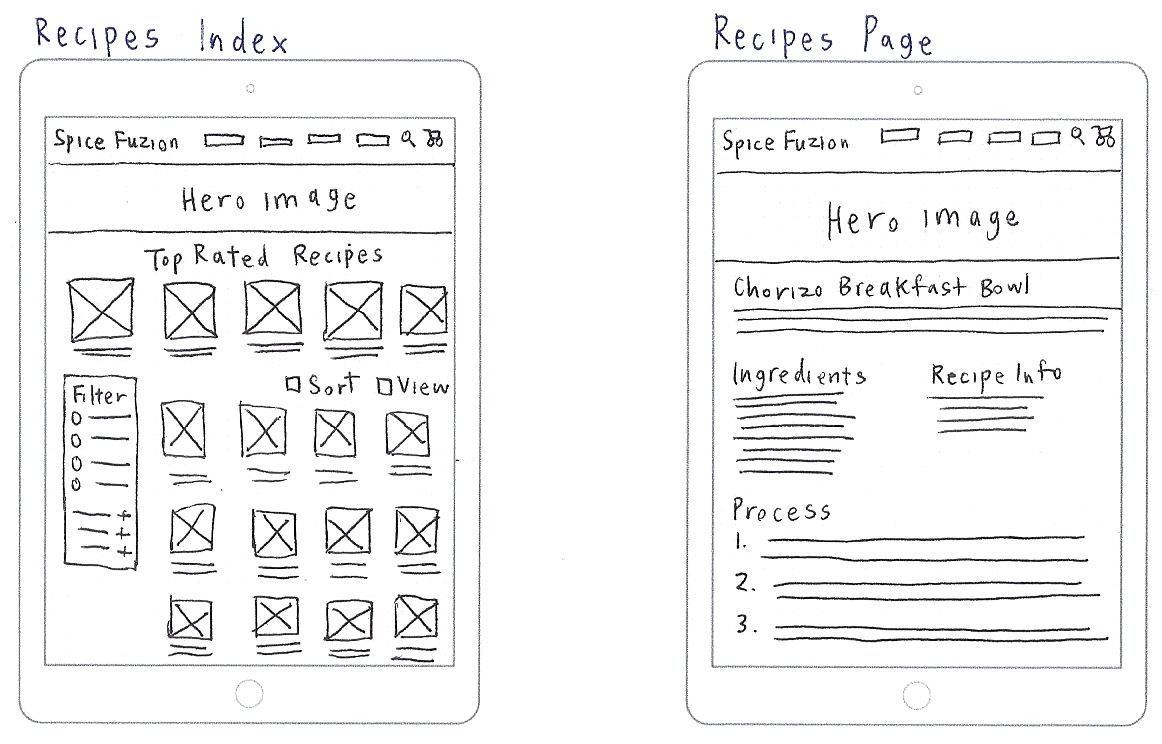 Recipes Index
Spice Fuzion
Hero image
Top Rated Recipes
Filter
Sort View
Recipes Page
Spice Fuzion
Hero image
Chorizo Breakfast Bowl
Ingredients
Recipe Info
Process
1.
2.
3.